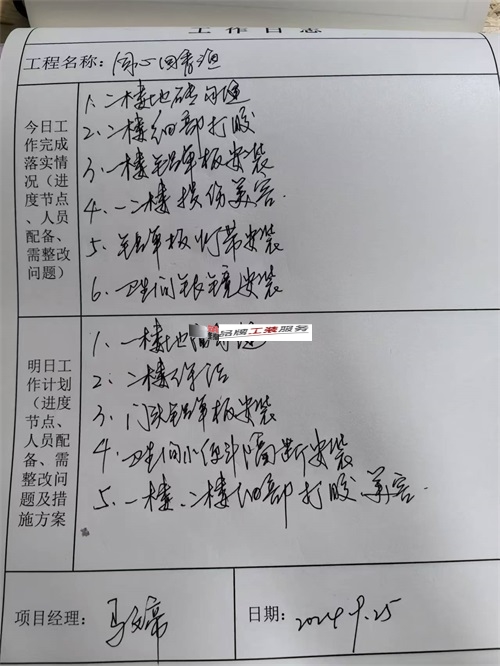 工作日志
工程名称：同心回香酒
今日工作完成落实情况（进度节点、人员配备、需整改问题）
1、二楼地砖勾缝
2、二楼细部打胶
3、一楼铝单板安装
4、一二楼损伤美容.
5、铝单板灯带安装
6、卫生间银镜安装
品牌工装服务
明日工作计划（进度节点、人员配备、需整改问题及措施方案
1、一楼地面勾缝
2、二楼保洁
3、门头铝单板安装
4、卫生间小便斗隔断安装
5、一楼、二楼细部打胶美容.
项目经理：马 日期：2024.9.25